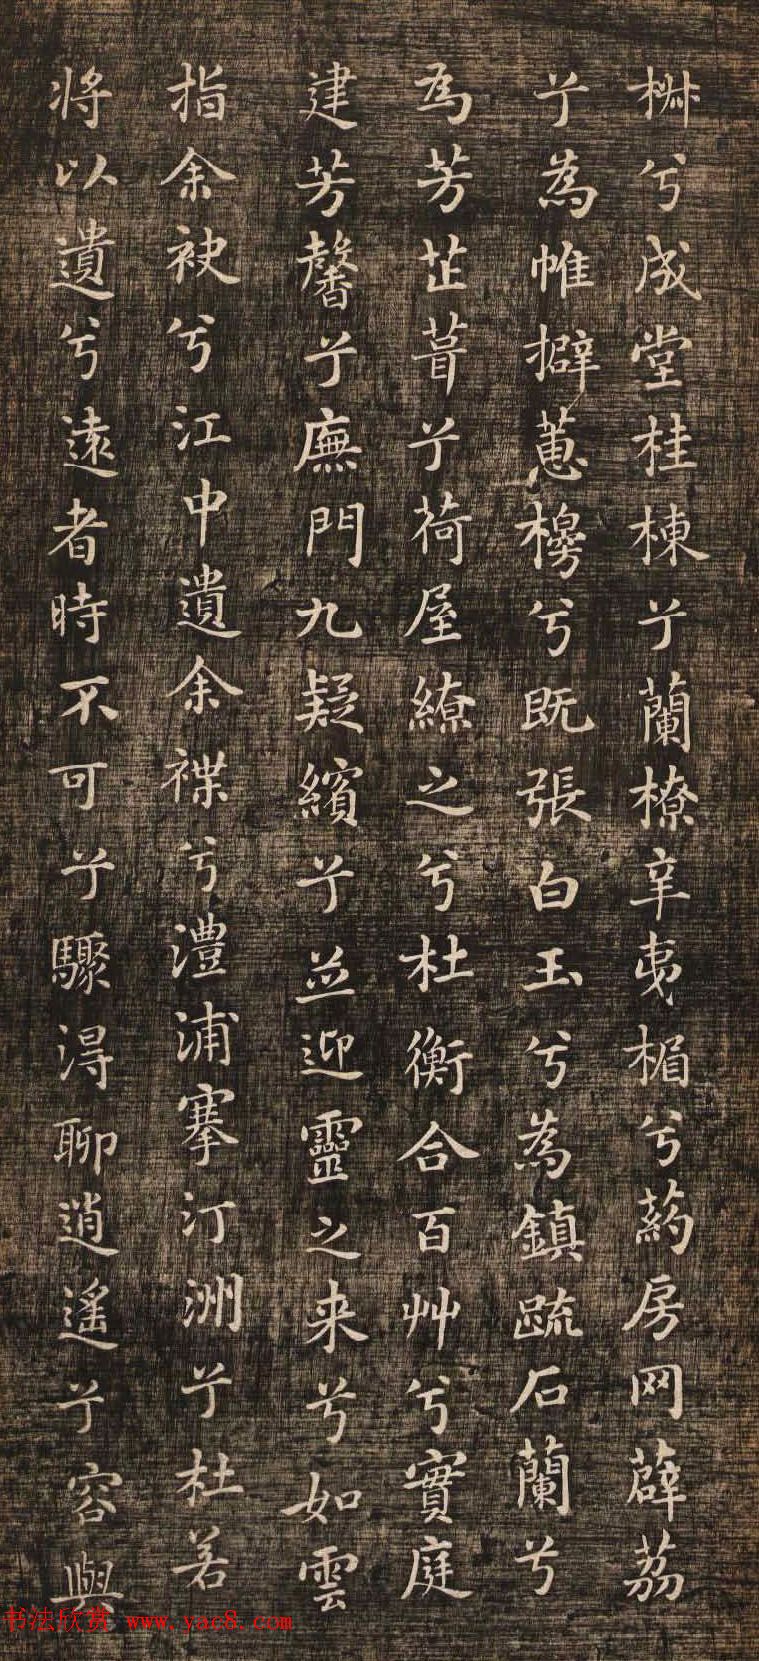 椒兮成堂桂棟兮蘭橑辛夷楣兮葯房网薜荔
兮為帷擗蕙櫋兮既張白玉兮為鎮疏石蘭兮
為芳芷葺兮荷屋繚之兮杜衡合百艸兮實庭
建芳馨兮廡門九疑繽兮並迎靈之来兮如雲
捐余袂兮江中遺余褋兮澧浦搴汀洲兮杜若
将以遺兮遠者時不可兮驟得聊逍遙兮容與
书法欣赏 www.yac8.com